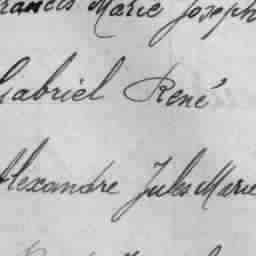 Francis Marie Joseph
Gabriel René
Alexandre Jules Marie